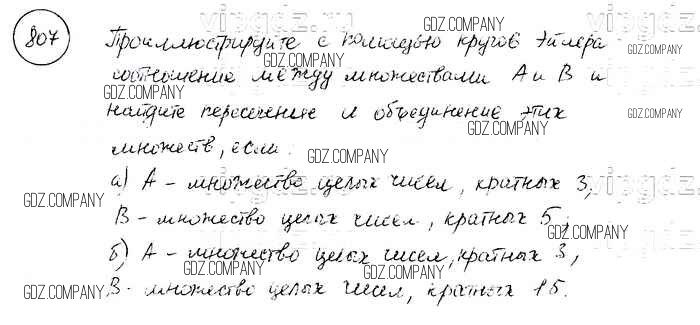 807
Проиллюстрируйте с помощью кругов Эйлера
соотношение между множествами А и В и
найдите пересечение и объединение этих
множеств, если
а) А - множество целых чисел, кратных 3,
В - множество целых чисел, кратных 5;
б) А - множество целых чисел, кратных 3,
В - множество целых чисел, кратных 15.
vipgdz.
GDZ.COMPANY
GDZ.COMPANY
GDZ.COMPANY
GDZ.COMPANY
GDZ.COMPANY
GDZ.COMPANY
GDZ.COMPANY
GDZ.COMPANY
GDZ.COMPANY
GDZ.COMPANY
GDZ.COMPANY
GDZ.COMPANY